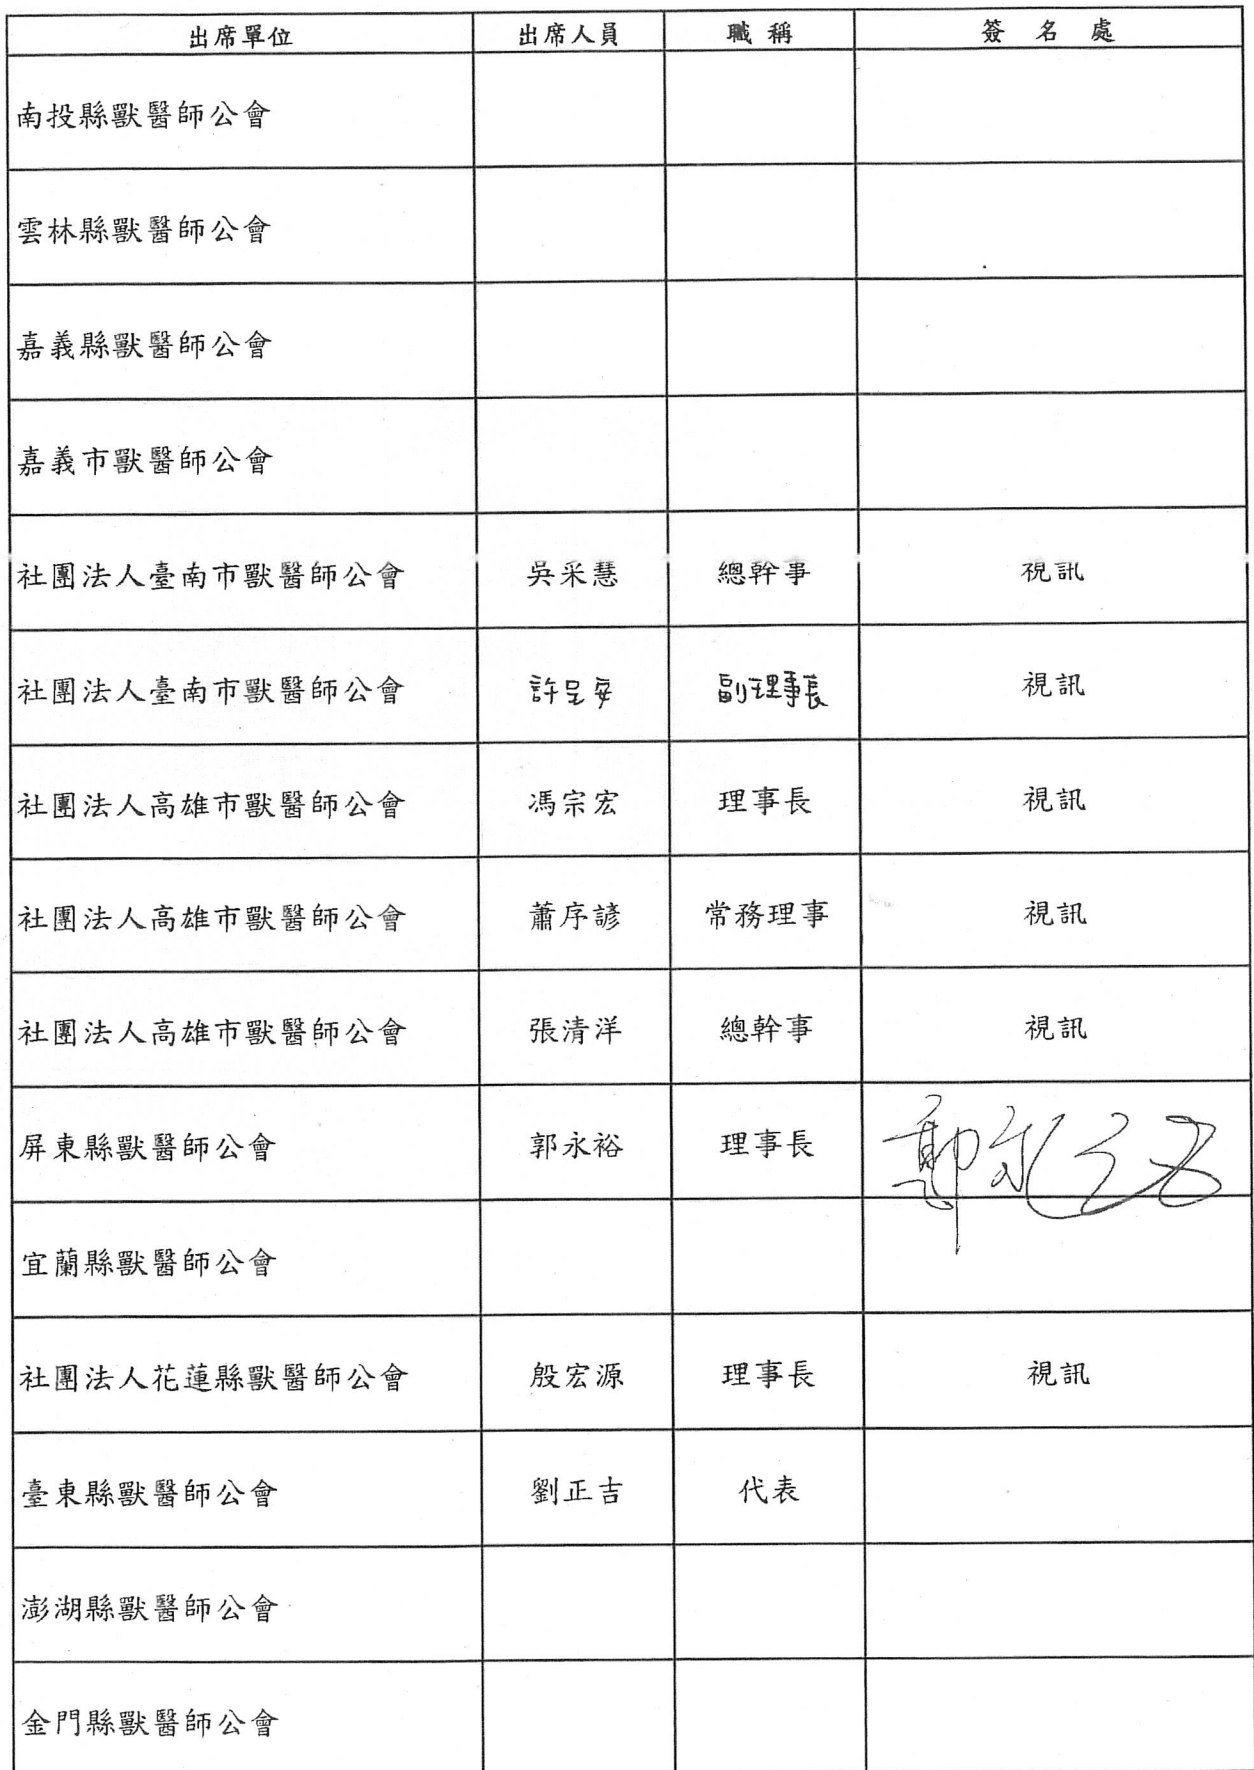 出席單位 出席人員 職稱 簽名處
南投縣獸醫師公會
雲林縣獸醫師公會
嘉義縣獸醫師公會
嘉義市獸醫師公會
社團法人臺南市獸醫師公會 吳采慧 總幹事 視訊
社團法人臺南市獸醫師公會 許呈安 副理事長 視訊
社團法人高雄市獸醫師公會 馮宗宏 理事長 視訊
社團法人高雄市獸醫師公會 蕭序諺 常務理事 視訊
社團法人高雄市獸醫師公會 張清洋 總幹事 視訊
屏東縣獸醫師公會 郭永裕 理事長 郭永裕
宜蘭縣獸醫師公會
社團法人花蓮縣獸醫師公會 殷宏源 理事長 視訊
臺東縣獸醫師公會 劉正吉 代表
澎湖縣獸醫師公會
金門縣獸醫師公會